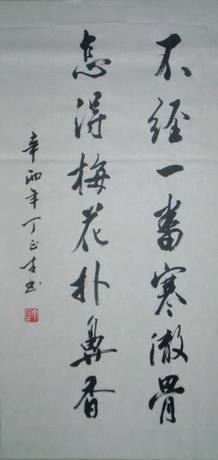 不经一番寒澈骨
怎得梅花扑鼻香
辛酉年丁正年书